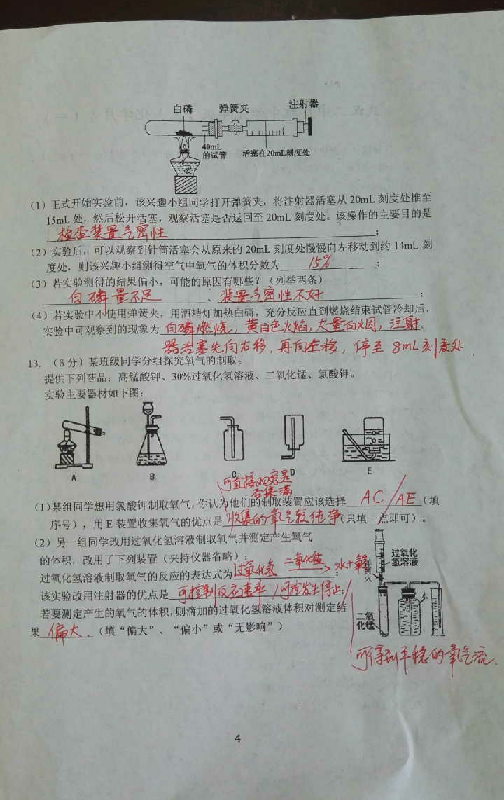 白磷 弹簧夹 注射器
40mL
的试管 活塞在20mL刻度处
(1) 正式开始实验前，该兴趣小组同学打开弹簧夹，将注射器活塞从 20mL 刻度处推至
15mL 处，然后松开活塞，观察活塞是否返回至 20mL 刻度处。该操作的主要目的是
检查装置气密性 ；
(2) 实验后，可以观察到针筒活塞会从原来的 20mL 刻度处慢慢向左移动到约 14mL 刻
度处，则该兴趣小组测得空气中氧气的体积分数为 15% ；
(3) 若实验测得的结果偏小，可能的原因有哪些？(列举两条)
白磷量不足 、 装置气密性不好 ；
(4) 若实验中不使用弹簧夹，用酒精灯加热白磷，充分反应直到燃烧结束试管冷却后，
实验中可观察到的现象为 白磷燃烧，黄白色火焰，大量白烟，注射
器活塞先向右移，再向左移，停至 8mL 刻度处
13. (8 分) 某班级同学分组探究氧气的制取。
提供下列药品：高锰酸钾、30%过氧化氢溶液、二氧化锰、氯酸钾。
实验主要器材如下图：
A B C D E
可直接观察是
否集满
(1)某组同学想用氯酸钾制取氧气，你认为他们的制取装置应该选择 AC / AE (填
序号)，用 E 装置收集氧气的优点是 收集的氧气较纯净 (只填一点即可)。
(2) 另一组同学改用过氧化氢溶液制取氧气并测定产生氧气
的体积，改用了下列装置（夹持仪器省略）：
过氧化氢溶液制取氧气的反应的表达式为 过氧化氢 二氧化锰 水＋氧气
该实验改用注射器的优点是 可控制反应速率 / 可随发生停止；
若要测定产生的氧气的体积，则滴加的过氧化氢溶液体积对测定结
果 偏大 (填“偏大”、“偏小”或“无影响”)
过氧化
氢溶液
二氧
化锰
可得到平稳的氧气流.
4